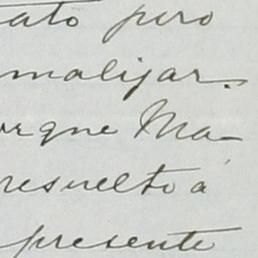 ato pero
malizar.
orque Ma-
resuelto a
presente